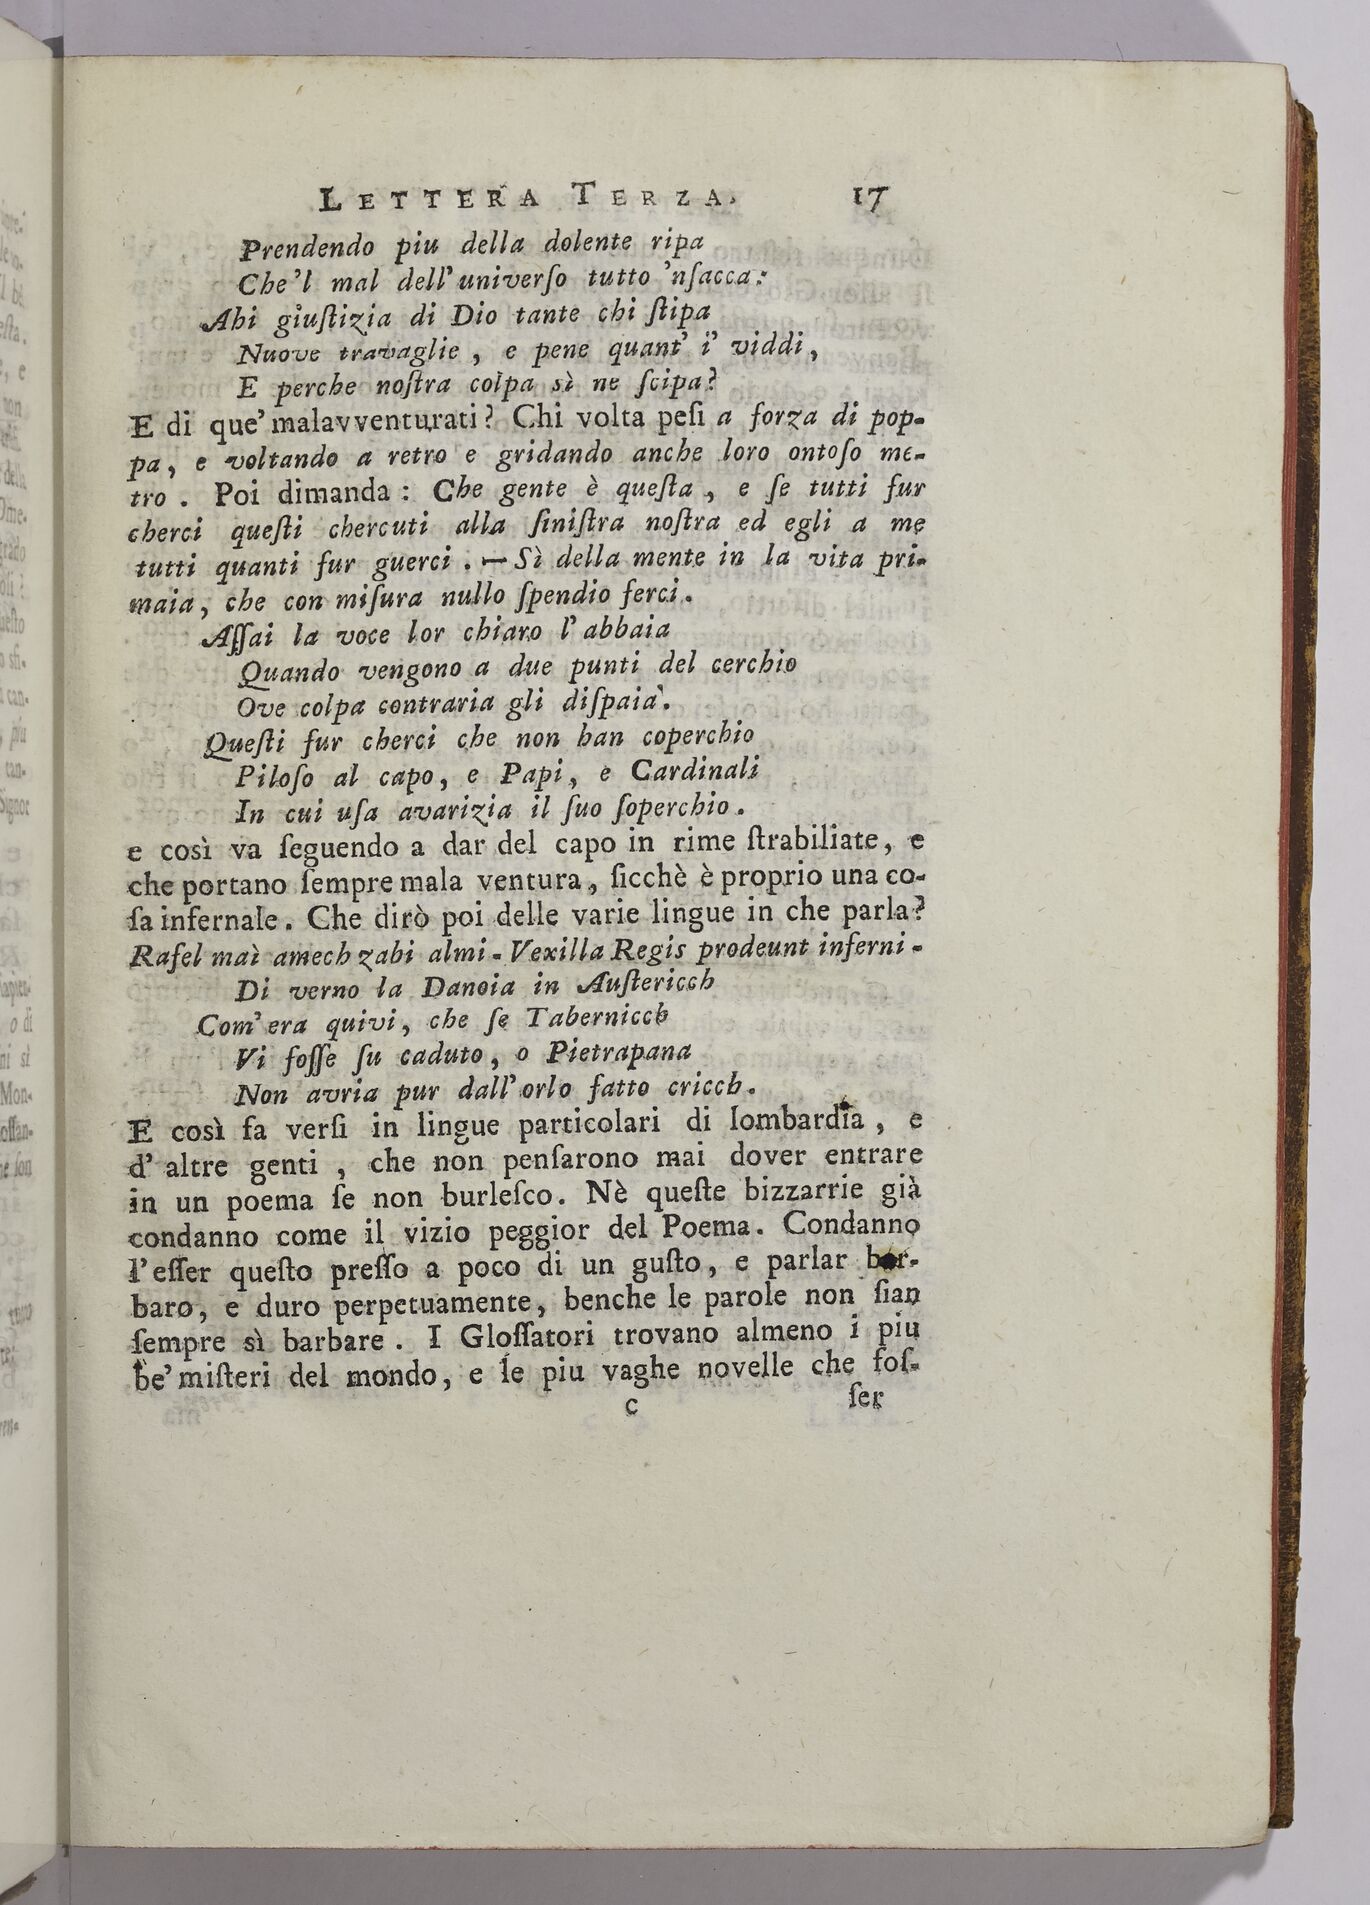 LETTERA TERZA. 17
Prendendo piu della dolente ripa
Che'l mal dell'univerſo tutto 'nſacca:
Ahi giuſtizia di Dio tante chi ſtipa
Nuove travaglie, e pene quant' i' viddi,
E perche noſtra colpa sì ne ſcipa?
E di que' malavventurati? Chi volta peſi a forza di pop-
pa, e voltando a retro e gridando anche loro ontoſo me-
tro. Poi dimanda: Che gente è queſta, e ſe tutti fur
cherci queſti chercuti alla ſiniſtra noſtra ed egli a me
tutti quanti fur guerci. — Sì della mente in la vita pri-
maia, che con miſura nullo ſpendio ferci.
Aſſai la voce lor chiaro l'abbaia
Quando vengono a due punti del cerchio
Ove colpa contraria gli diſpaia.
Queſti fur cherci che non han coperchio
Piloſo al capo, e Papi, e Cardinali
In cui uſa avarizia il ſuo ſoperchio.
e così va ſeguendo a dar del capo in rime ſtrabiliate, e
che portano ſempre mala ventura, ſicchè è proprio una co-
ſa infernale. Che dirò poi delle varie lingue in che parla?
Rafel maì amech zabi almi. Vexilla Regis prodeunt inferni.
Di verno la Danoia in Auſtericch
Com'era quivi, che ſe Tabernicch
Vi foſſe ſu caduto, o Pietrapana
Non avria pur dall'orlo fatto cricch.
E così fa verſi in lingue particolari di lombardia, e
d'altre genti, che non penſarono mai dover entrare
in un poema ſe non burleſco. Nè queſte bizzarrie già
condanno come il vizio peggior del Poema. Condanno
l'eſſer queſto preſſo a poco di un guſto, e parlar bar-
baro, e duro perpetuamente, benche le parole non ſian
ſempre sì barbare. I Gloſſatori trovano almeno i piu
be' miſteri del mondo, e le piu vaghe novelle che foſ-
c ſer